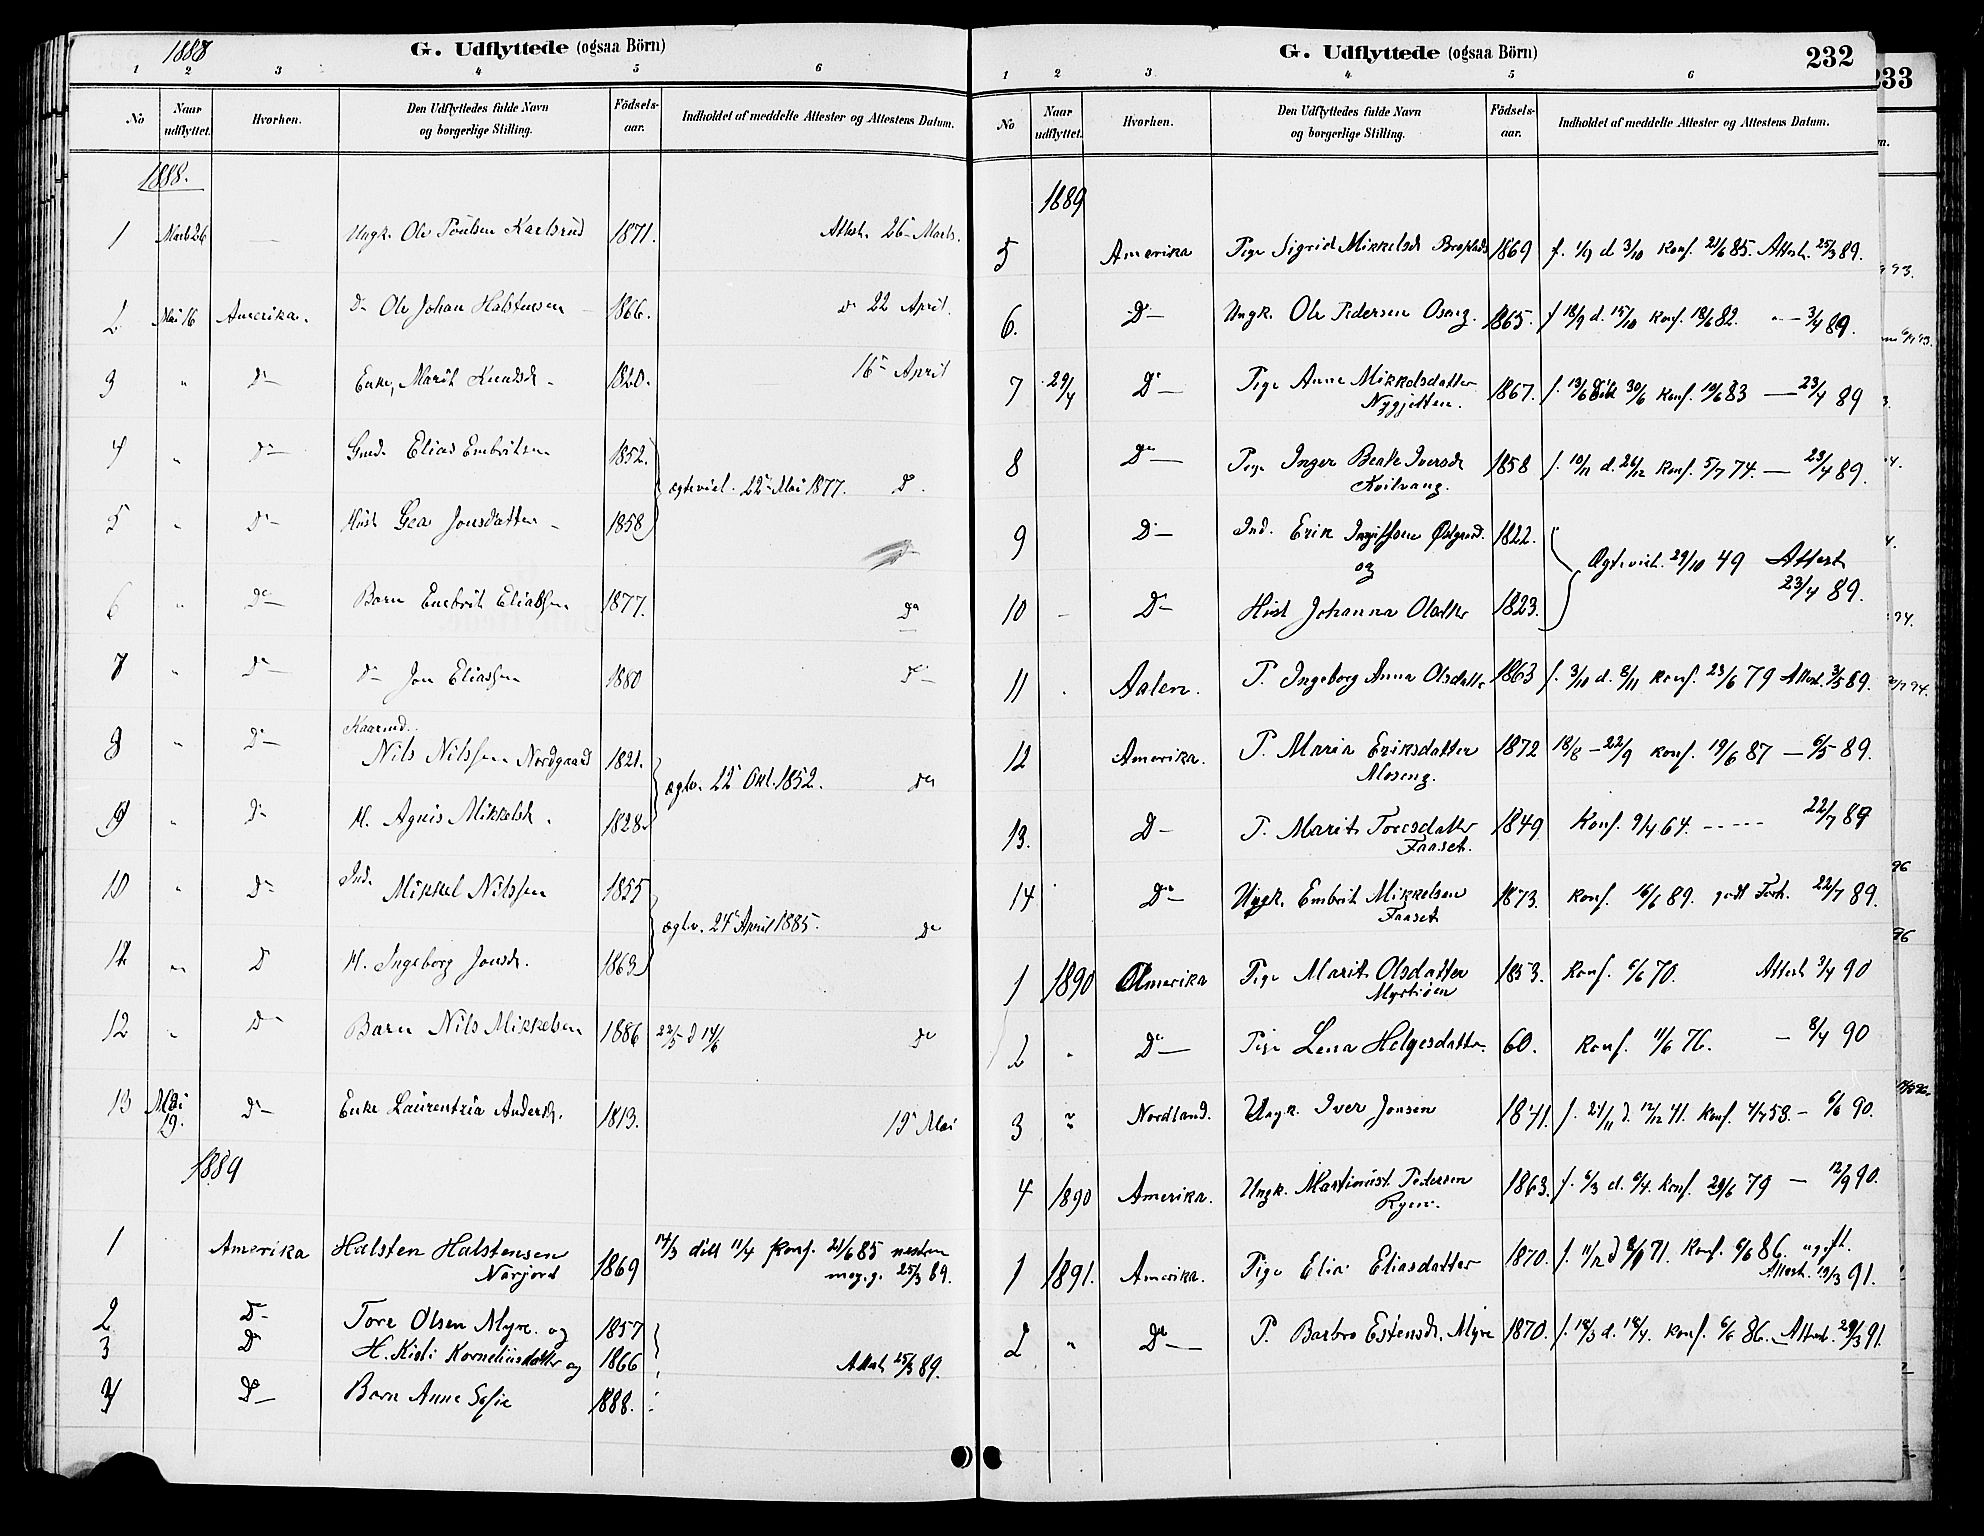 1888
G. Udflyttede (ogsaa Börn)
1 2 3 4 5 6
No Naar udflyttet. Hvorhen. Den Udflyttedes fulde Navn og borgerlige Stilling. Födsels-aar. Indholdet af meddelte Attester og Attestens Datum.
1888.
1 Marts 26 — Ungk. Ole Poulsen Karlsrud 1871. Attest. 26 Marts.
2 Mai 16 Amerika. Do Ole Johan Halstensen 1866. Do 22 April.
3 " Do Enke, Marit Knudsd. 1820. 16 April
4 " Do Gmd. Elias Embritsen 1852.
ægteviet. 22 Mai 1877. D.
5 " Do Hust. Gea Jonsdatter 1858
Do
6 " Do Barn Embrit Eliassen 1877. Do
7 " Do Do Jon Eliassen 1880 Do
8 " Do Kaarmd. Nils Nilssen Nordgaard 1821.
ægtv. 22 Okt. 1852. Do
9 " Do H. Agnis Mikkelsd. 1828.
10 " Do Ind. Mikkel Nilssen 1855
ægtv. 24 April 1885. Do
11 " D H. Ingeborg Jonsd. 1863
12 " Do Barn Nils Mikkelsen 1886 22/5 d 14/6 Do
13 Mai 19. Do Enke Laurentzia Andersd. 1813. 19 Mai
1889
1 Amerika Halsten Halstensen 1869 14/3 döbt 11/4 Konf. 21/6 85 nesten
Narjord meg. g. 25/3 89.
2 Do Tore Olsen Myre. og 1857
3 Do H. Kisti Korneliusdatter og 1866 Attest 25/3 89.
4 Do Barn Anne Sofie 1888.
G. Udflyttede (ogsaa Börn) 232
1 2 3 4 5 6
No Naar udflyttet. Hvorhen. Den Udflyttedes fulde Navn og borgerlige Stilling. Födsels-aar. Indholdet af meddelte Attester og Attestens Datum.
1889
5 Amerika Pige Sigrid Mikkelsd. 1869 f. 1/9 d 3/10 Konf. 21/6 85. Attest. 25/3 89.
6. Do Ungk. Ole Pedersen Oseng. 1865. f 18/9 d. 15/10 Konf. 18/6 82. " — 3/4 89.
7 29/4 Do Pige Anne Mikkelsdatter 1867. f. 13/6 Döbt 30/6 Konf. 10/6 83 — 23/4 89
Nygjetten.
8 Do Pige Inger Beate Iversd. 1858 f. 10/11 d. 26/12 Konf. 5/7 74. — 23/4 89.
Kvilvang.
9 Do Ind. Erik 1822.
og Ægteviet. 29/10 49 Attest
23/4 89.
10 – Do Hust Johanna Olsdtr 1823.
11 Aalen. P. Ingeborg Anna Olsdatter 1863 f. 3/10 d. 8/11 Konf. 23/6 79 Attest. 3/5 89.
12 Amerika. P. Maria Eriksdatter 1872 18/8 – 22/9 Konf. 19/6 87 — 6/5 89.
Moseng.
13. Do P. Marit Toresdatter 1849 Konf. 9/4 64. ----- 22/7 89
Faaset.
14 Do Ungk. Embrit Mikkelsen 1873. Konf. 16/6 89. godt Forh. 22/7 89.
Faaset
1 1890 Amerika Pige Marit Olsdatter 1853. Konf. 6/6 70. Attest 3/4 90
Myrtiöen
2 " Do Pige Lena Helgesdatter. 60. Konf. 11/6 76. — 8/4 90
3 " Nordland. Ungk. Iver Jonsen 1841. f. 21/11 d. 12/12 41. Konf. 4/7 58. — 6/6 90.
4 1890 Amerika. Ungk. Martinius Pedersen 1863. f. 6/3 d. 6/4. Konf. 29/6 79 — 12/9 90.
Ryen.
1 1891. Amerika. Pige Elia Eliasdatter 1870. f. 11/12 d 8/1 71. Konf. 6/6 86. ugift.
Attest. 19/3 91.
2 " Do P. Barbro Estensd. Myre 1870. f. 18/3 d. 18/4. Konf. 6/6 86. Attest. 29/3 91.
233